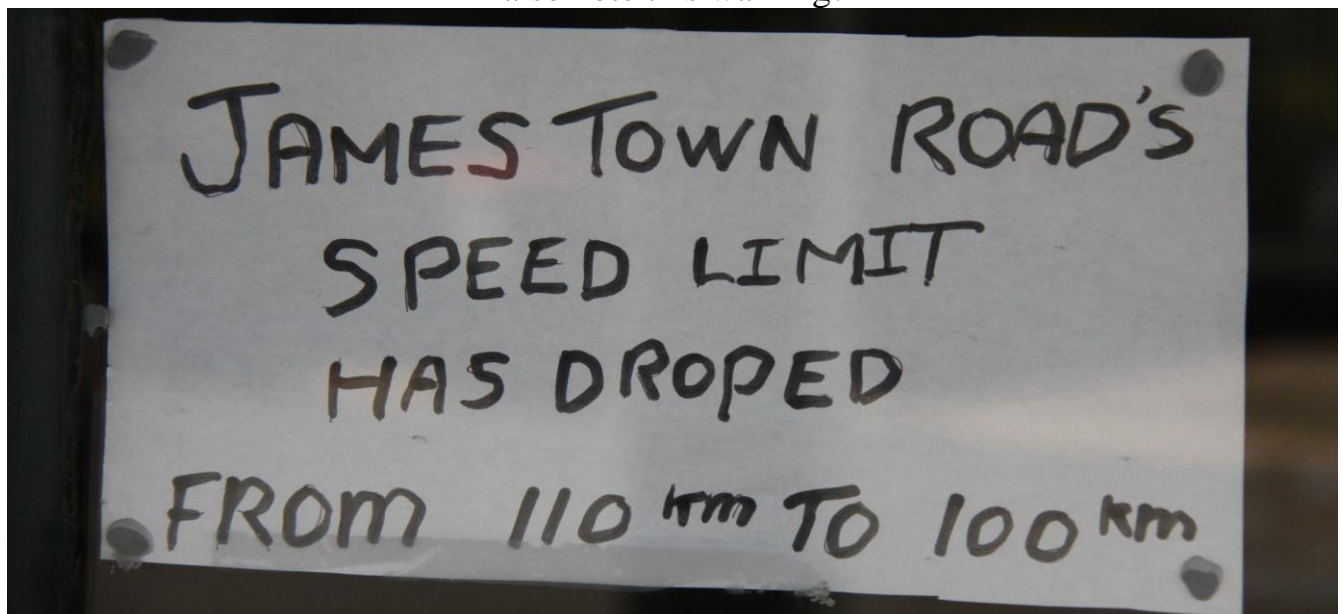 JAMES TOWN ROAD'S
SPEED LIMIT
HAS DROPED
FROM 110 km TO 100 km